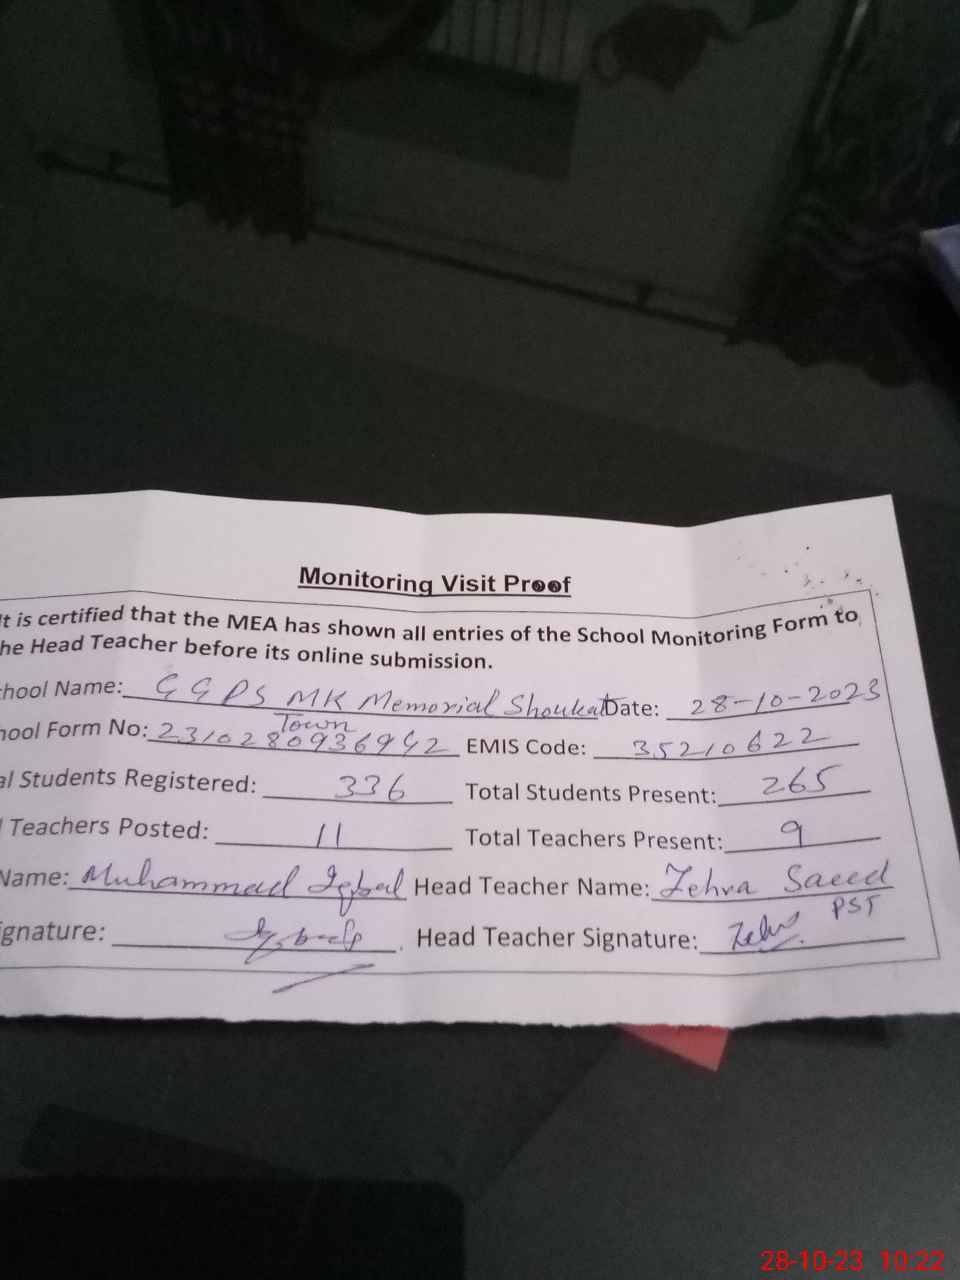 Monitoring Visit Proof
It is certified that the MEA has shown all entries of the School Monitoring Form to
he Head Teacher before its online submission.
chool Name: GGPS MK Memorial Shoukat Date: 28-10-2023
Town
hool Form No: 2310280936942 EMIS Code: 35210622
al Students Registered: 336 Total Students Present: 265
l Teachers Posted: 11 Total Teachers Present: 9
Name: Muhammad Iqbal Head Teacher Name: Zehra Saeed
PST
ignature: Iqbal Head Teacher Signature: Zehra
28-10-23 10:22